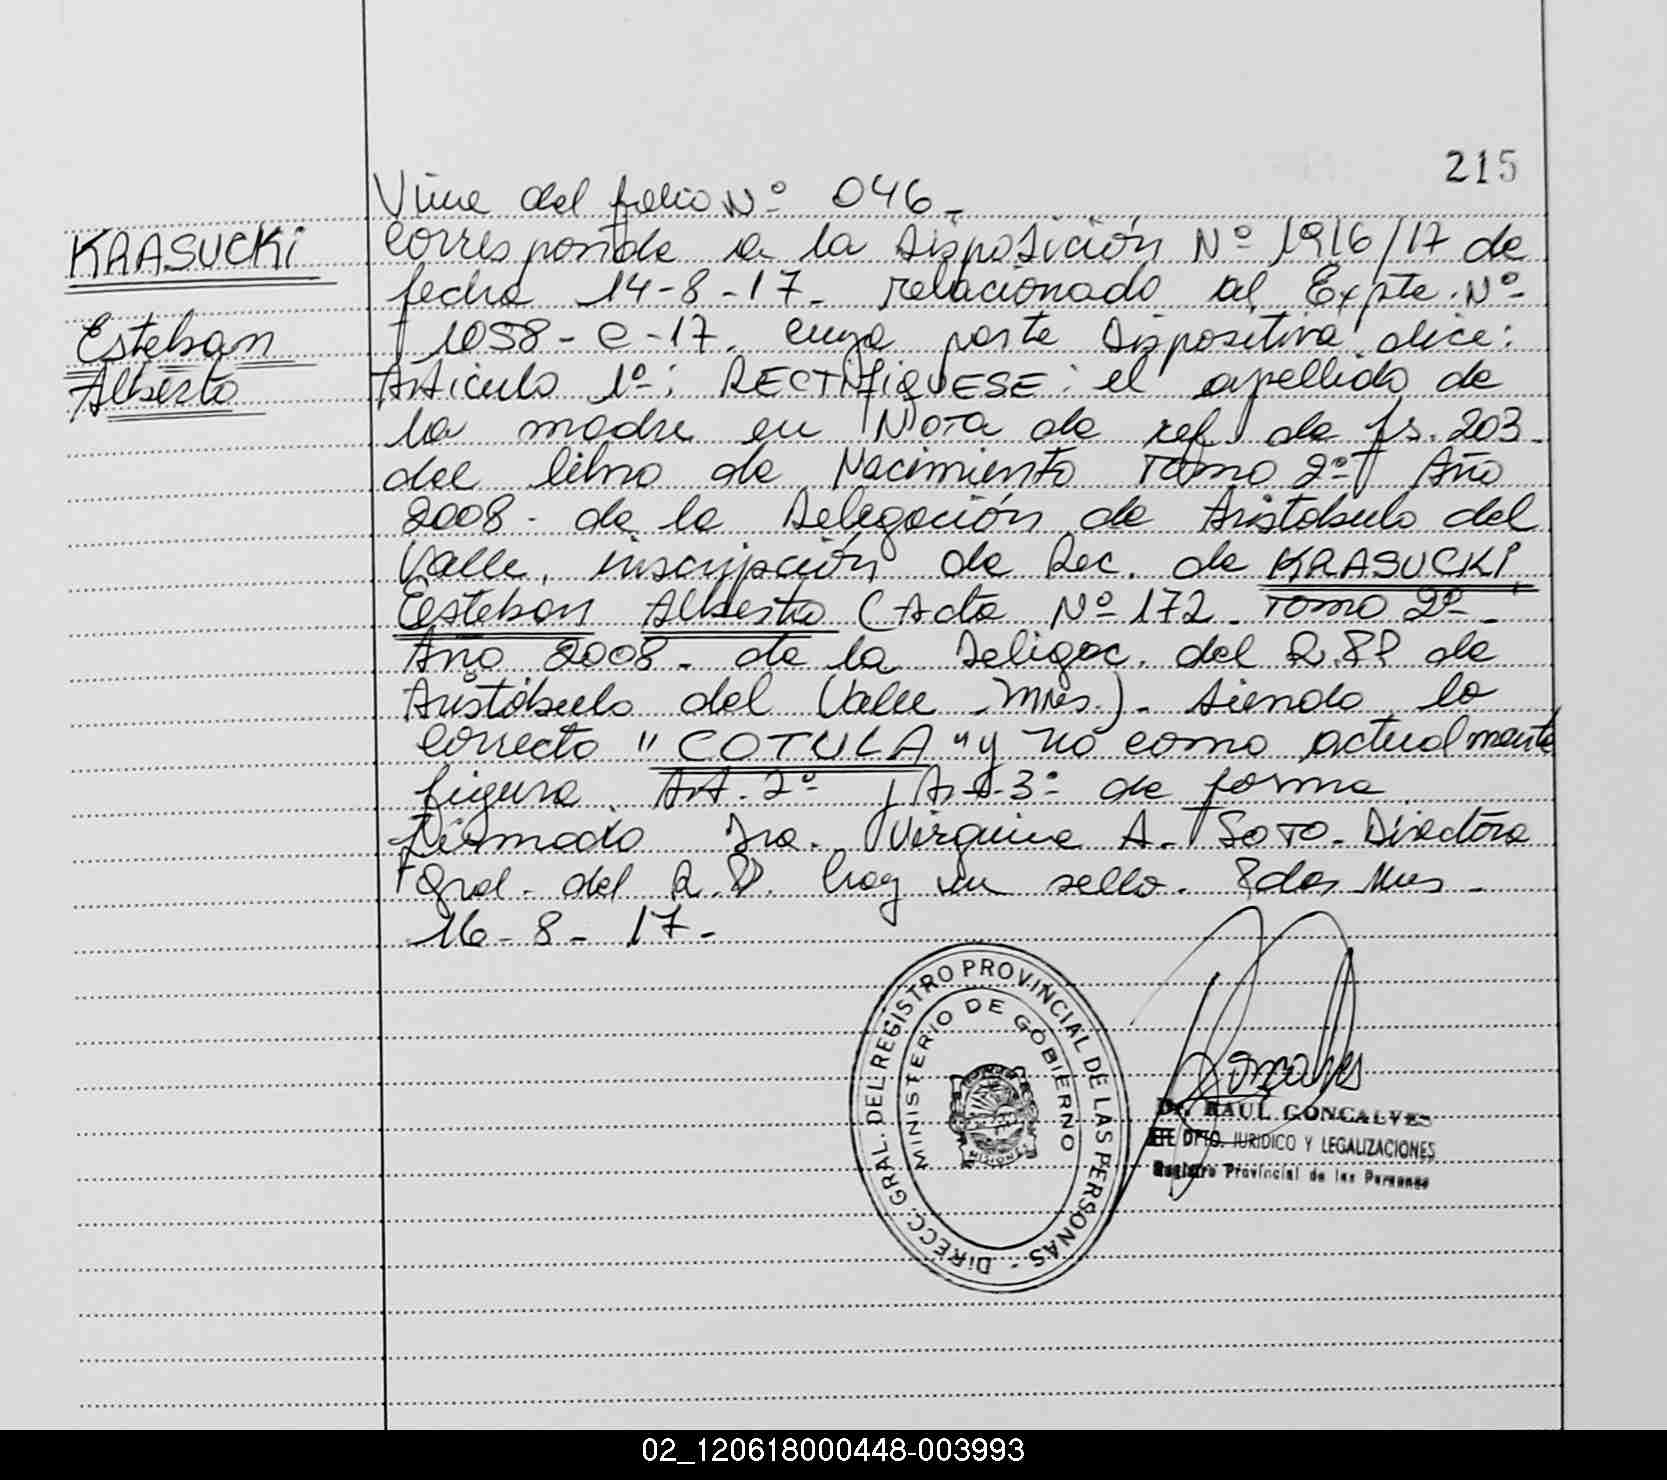 215
Viene del folio Nº 046.-
KRASUCKI
Esteban
Alberto
Corresponde a la Disposición Nº 1916/17 de
fecha 14-8-17- relacionado al Expte. Nº
1058-C-17. cuya parte Dispositiva dice:
Articulo 1º: RECTIFIQUESE: el apellido de
la madre en Nota de ref. de fs. 203-
del libro de Nacimiento Tomo 2º Año
2008- de la Delegación de Aristobulo del
Valle, inscripción de Rec. de KRASUCKI,
Esteban Alberto (Acta Nº 172- Tomo 2º-
Año 2008- de la Delegac. del R.PP de
Aristóbulo del Valle -Mnes.)- siendo lo
correcto "COTULA" y no como actualmente
figura. Art. 2º y Art. 3º de forma
Firmado Dra. Virginia A. SOTO- Directora
Gral- del R.P. hay un sello. Pdas Mnes-
16-8-17-
DIRECC. GRAL. DEL REGISTRO PROVINCIAL DE LAS PERSONAS.-
MINISTERIO DE GOBIERNO
MISIONES
Dr. RAUL GONCALVES
JEFE DPTO. JURIDICO Y LEGALIZACIONES
Registro Provincial de las Personas
02_120618000448-003993